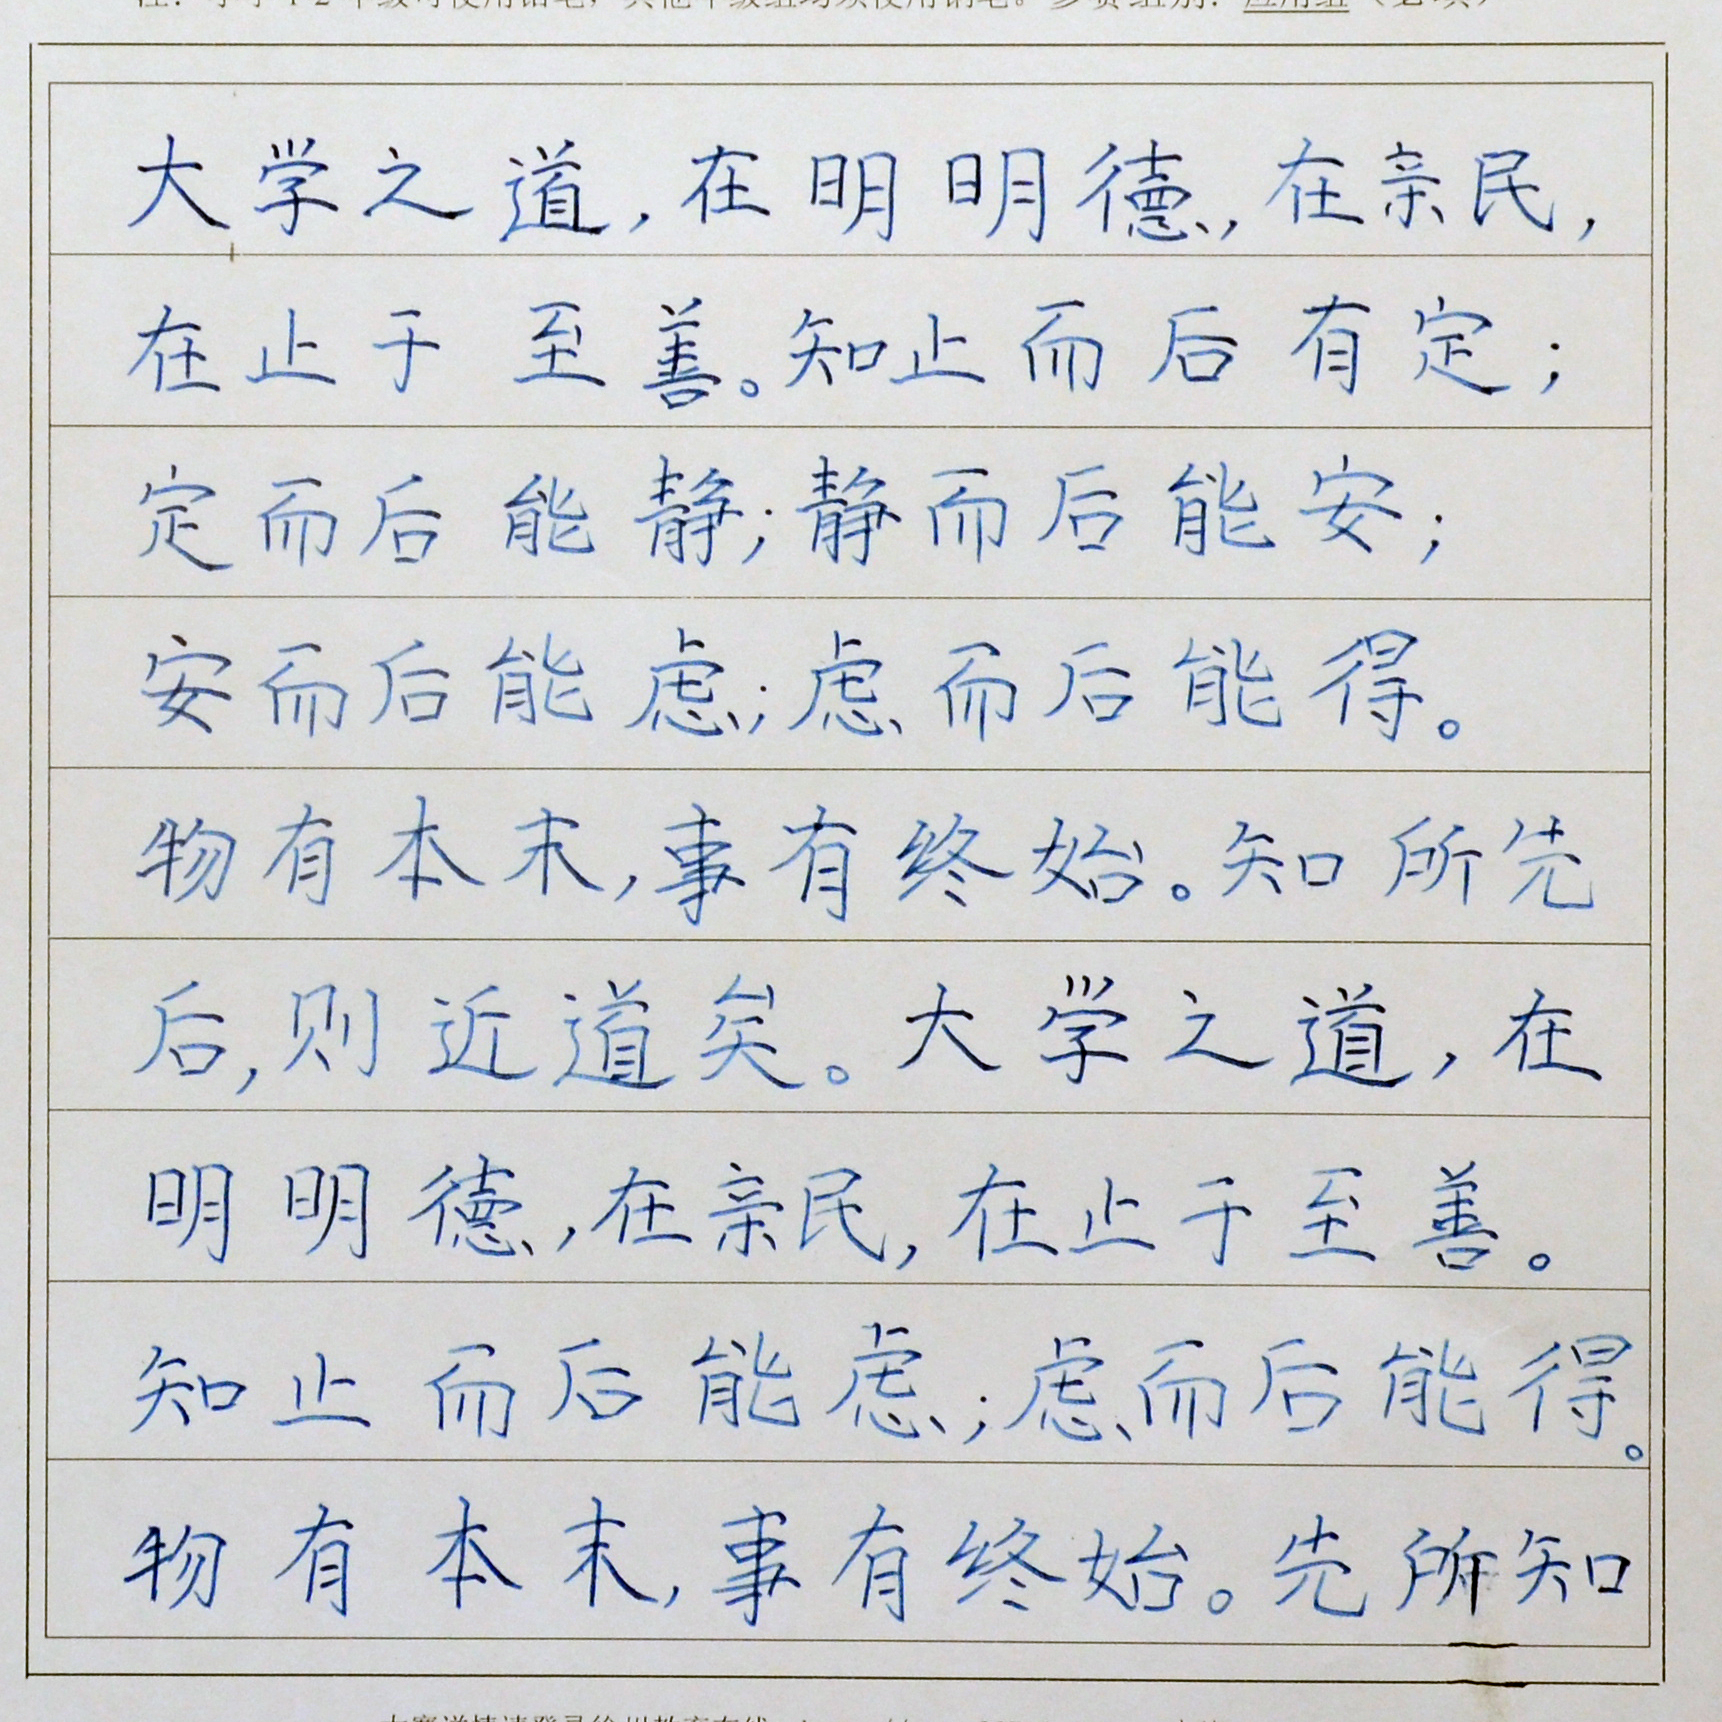 大学之道,在明明德,在亲民,
在止于至善。知止而后有定;
定而后能静;静而后能安;
安而后能虑;虑而后能得。
物有本末,事有终始。知所先
后,则近道矣。大学之道,在
明明德,在亲民,在止于至善。
知止而后能虑;虑而后能得。
物有本末,事有终始。先所知